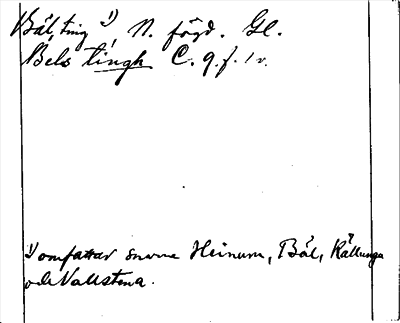 Bäl, ting 1), N. förd. Gl.
Bels tingh C. 9. f. 1 v.
1) omfattar snrne Heinum, Bäl, Källunga
och Vallstena.